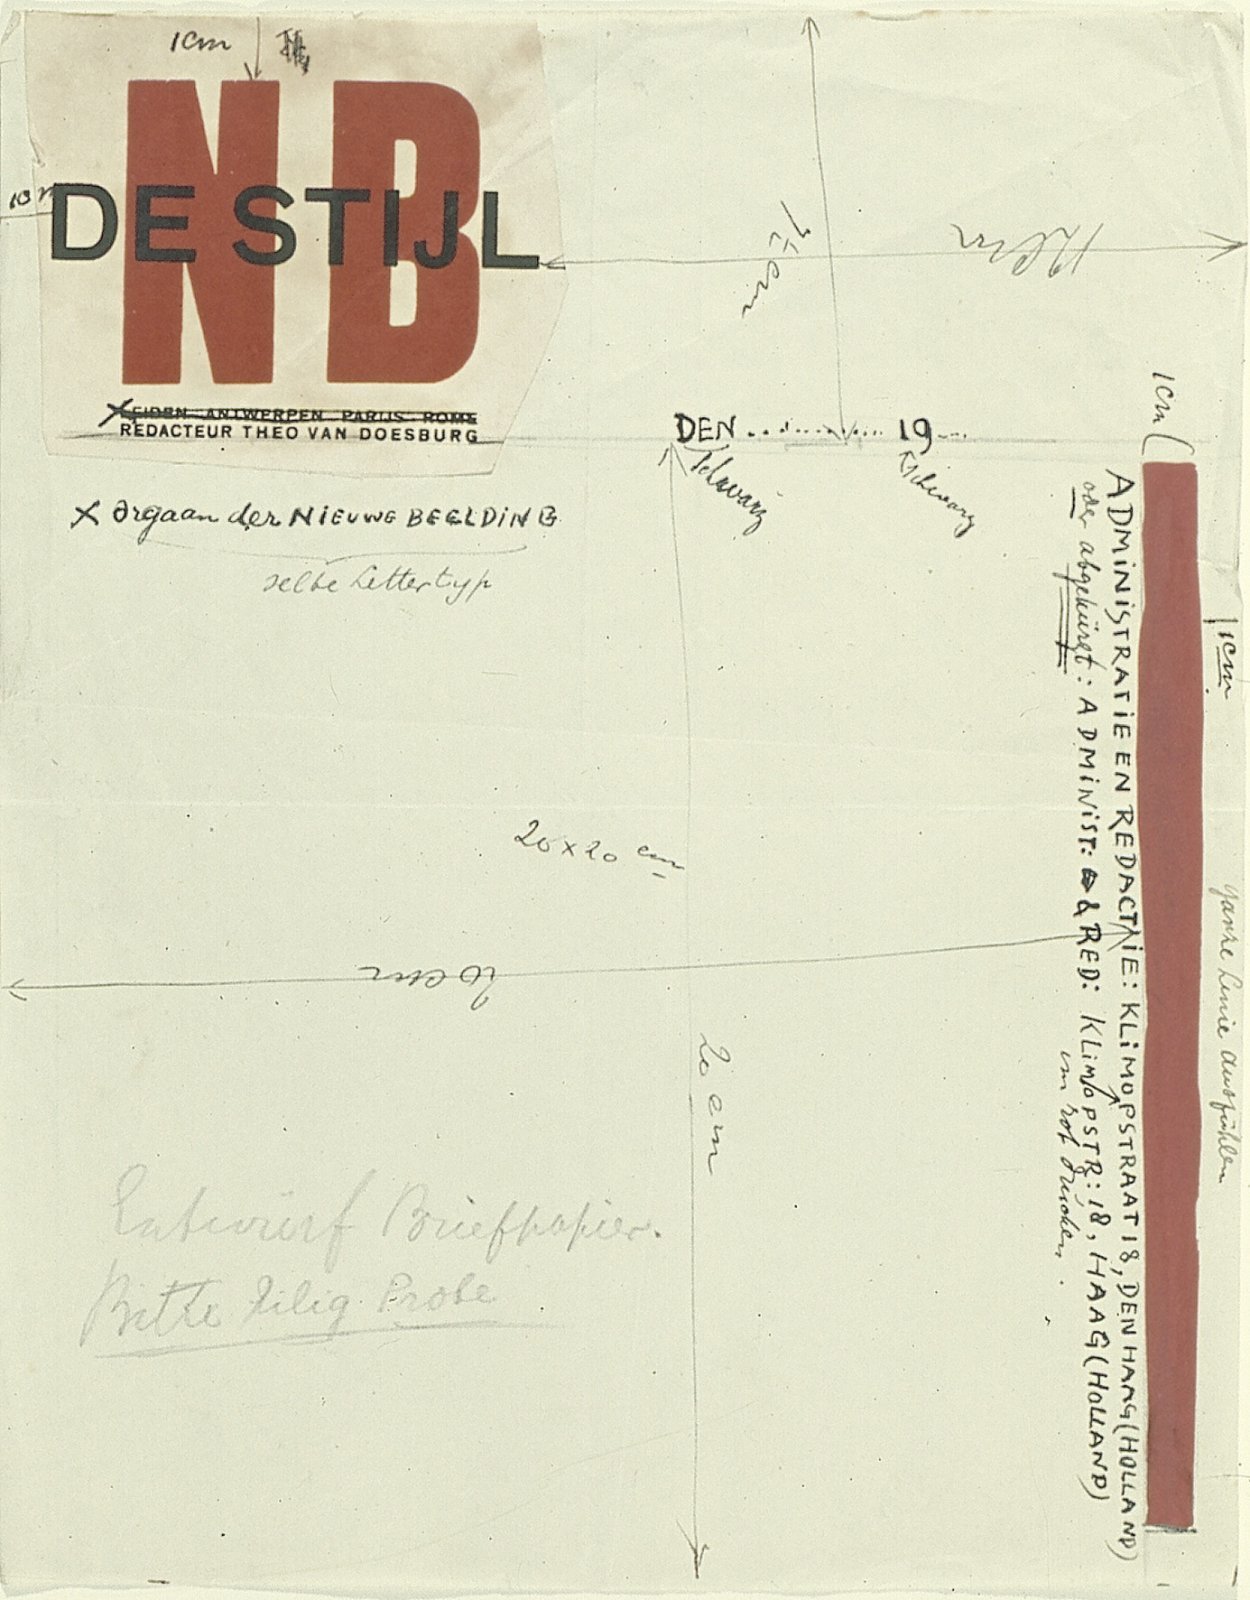 1cm
NB
DE STIJL
LEIDEN ANTWERPEN PARIJS ROME
REDACTEUR THEO VAN DOESBURG
X Orgaan der NIEUWE BEELDING
selbe Lettertyp
12cm
DEN .................. 19....
schwarz
schwarz
1cm
1cm
ADMINISTRATIE EN REDACTIE: KLIMOPSTRAAT 18, DEN HAAG (HOLLAND)
oder abgekürzt: ADMINIST: & RED: KLIMOPSTR: 18, HAAG (HOLLAND)
in rot drucken.
ganze Linie ausfüllen
20 x 20 cm
20 cm
20 cm
Entwurf Briefpapier.
Bitte eilig Probe